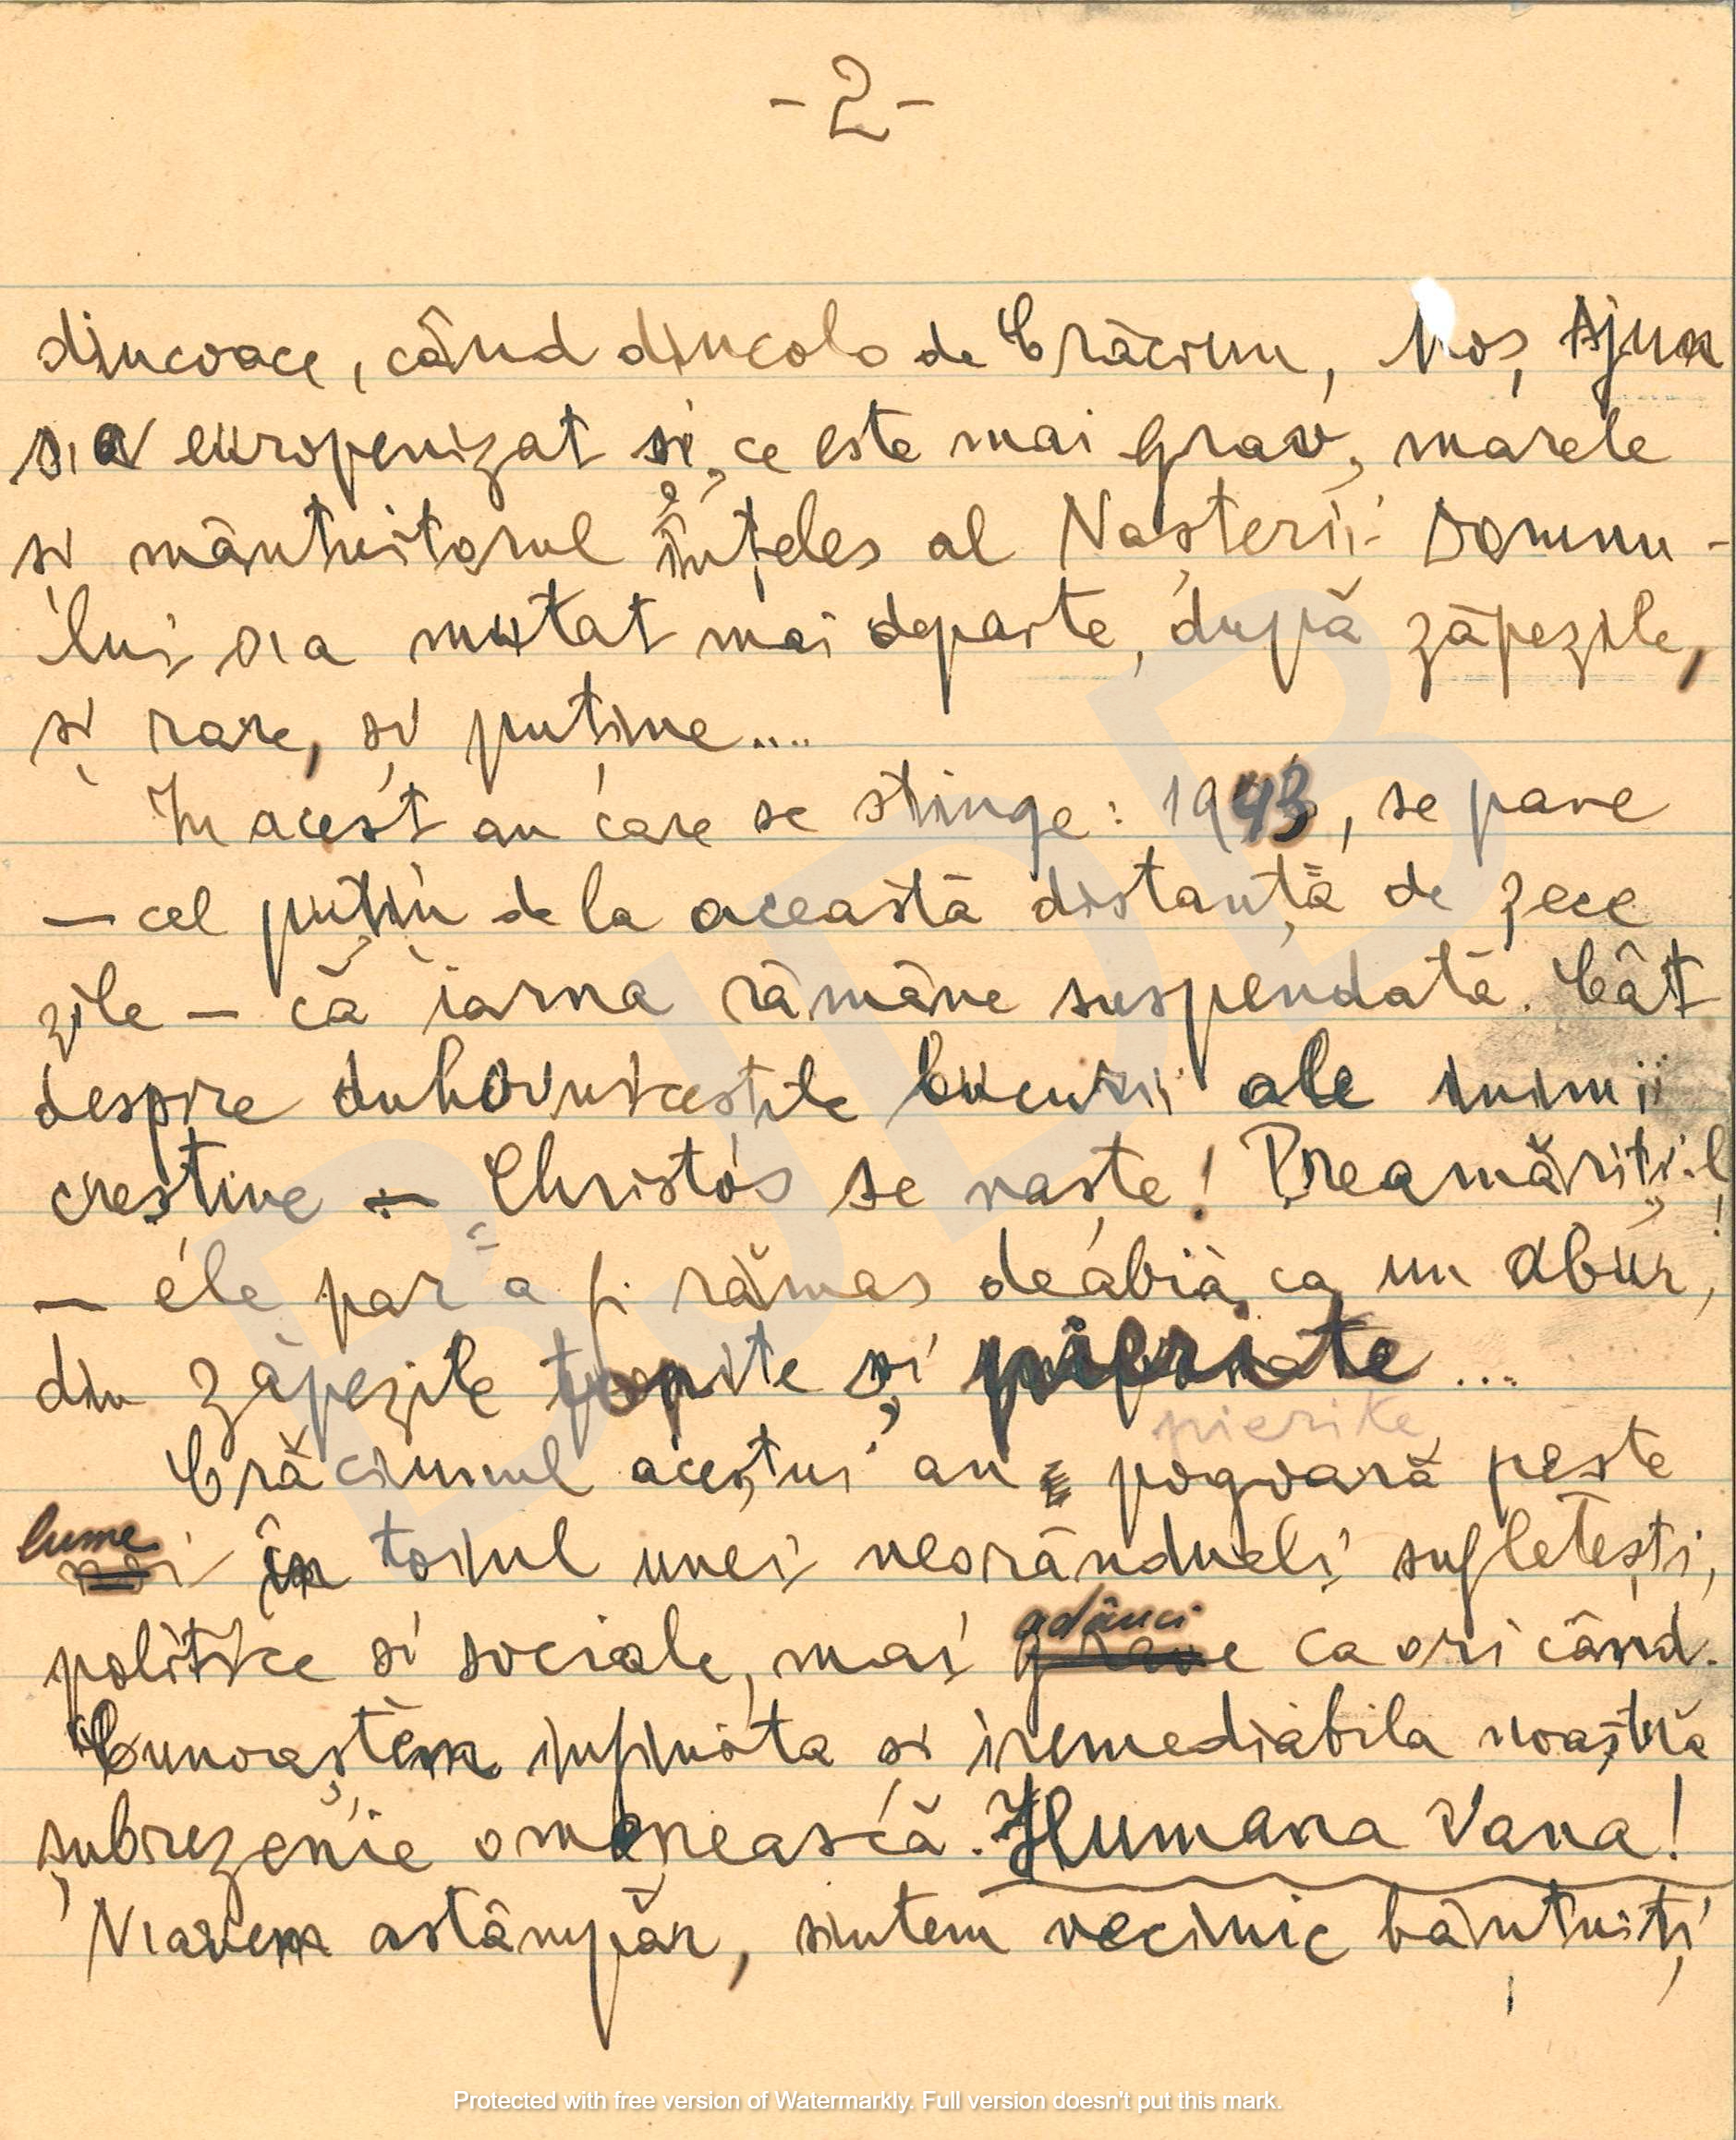 -2-
dincoace, când dincolo de Crăciun, Moș Ajun
s'a europenizat și, ce este mai grav, marele
și mântuitorul înțeles al Nașterii Domnu-
lui s'a mutat mai departe, după zăpezile,
și rare, și puține....
In acest an care se stinge: 1943, se pare
— cel puțin de la această distanță de zece
zile — că iarna rămâne suspendată. Cât
despre duhovniceștile bucurii ale inimii
creștine — Christos se naște! Preamăriți-l!
— ele par a fi rămas deabia, ca un abur,
din zăpezile topite și pierite ...
pierite
Crăciunul acestui an pogoară peste
lume
noi în toiul unei neorândueli sufletești,
adânci
politice și sociale, mai grave ca ori când.
Cunoaștem infinita și iremediabila noastră
șubrezenie omenească. Humana Vana!
N'avem astâmpăr, sintem vecinic bântuiți
BJDB
Protected with free version of Watermarkly. Full version doesn't put this mark.